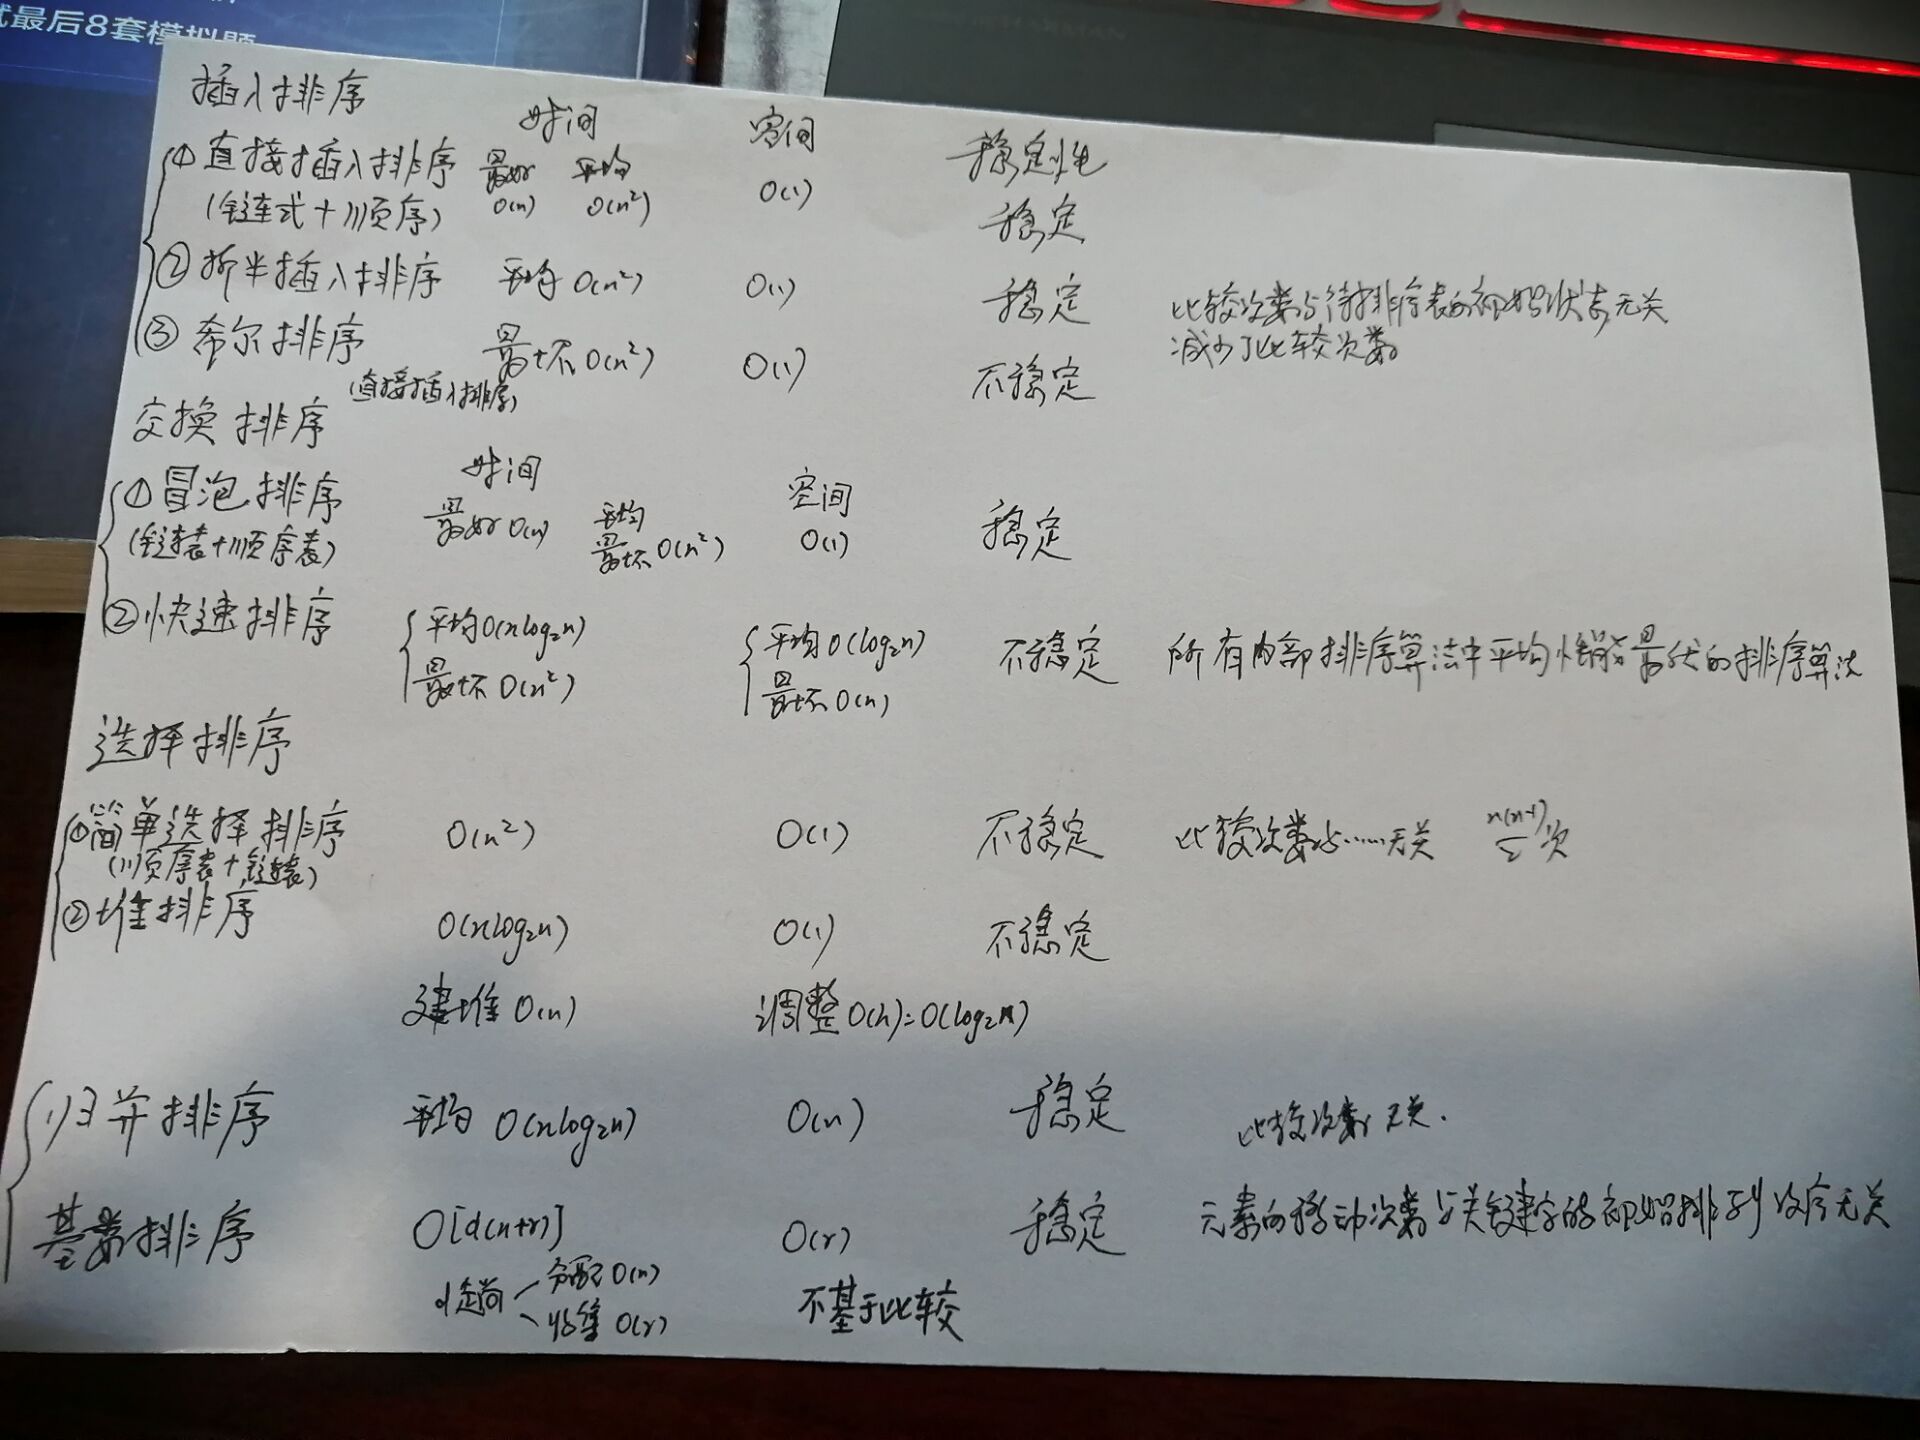 试最后8套模拟题
插入排序
时间 空间 稳定性
①直接插入排序 最好 平均
(链式+顺序) O(n) O(n²) O(1) 稳定
②折半插入排序 平均 O(n²) O(1) 稳定 比较次数与待排序表的初始状态无关
减少了比较次数
③希尔排序 最坏 O(n²) O(1) 不稳定
(直接插入排序)
交换排序
时间 空间
①冒泡排序 最好 O(n) 平均 最坏 O(n²) O(1) 稳定
(链表+顺序表)
②快速排序 平均O(nlog₂n) 平均O(log₂n) 不稳定 所有内部排序算法中平均性能最优的排序算法
最坏 O(n²) 最坏 O(n)
选择排序
①简单选择排序 O(n²) O(1) 不稳定 比较次数与……无关 n(n-1)/2次
(顺序表+链表)
②堆排序 O(nlog₂n) O(1) 不稳定
建堆 O(n) 调整 O(h)=O(log₂n)
归并排序 平均 O(nlog₂n) O(n) 稳定 比较次数 无关.
基数排序 O[d(n+r)] O(r) 稳定 元素的移动次数与关键字的初始排列次序无关
d趟 分配 O(n) 不基于比较
收集 O(r)